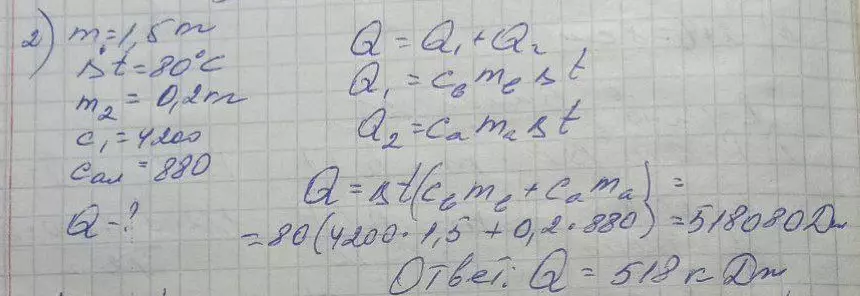 2) m₁=1,5 т
Δt=80°C
m₂=0,2 т
c₁=4200
cал=880
Q-?
Q=Q₁+Q₂
Q₁=cвmвΔt
Q₂=cаmаΔt
Q=Δt(cвmв+cаmа)=
=80(4200·1,5+0,2·880)=518080Дж
Ответ: Q=518кДж